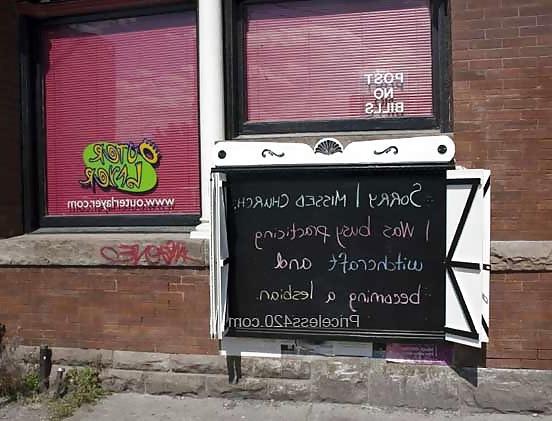 OUTER
LAYER
www.outerlayer.com
POST
NO
BILLS
SORRY I MISSED CHURCH,
I Was busy practicing
witchcraft and
becoming a lesbian.
Priceless420.com